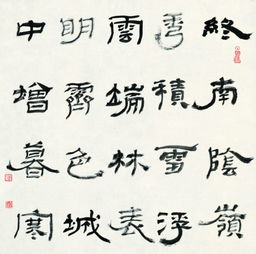 終南陰嶺
秀積雪浮
雲端林表
明霽色城
中增暮寒